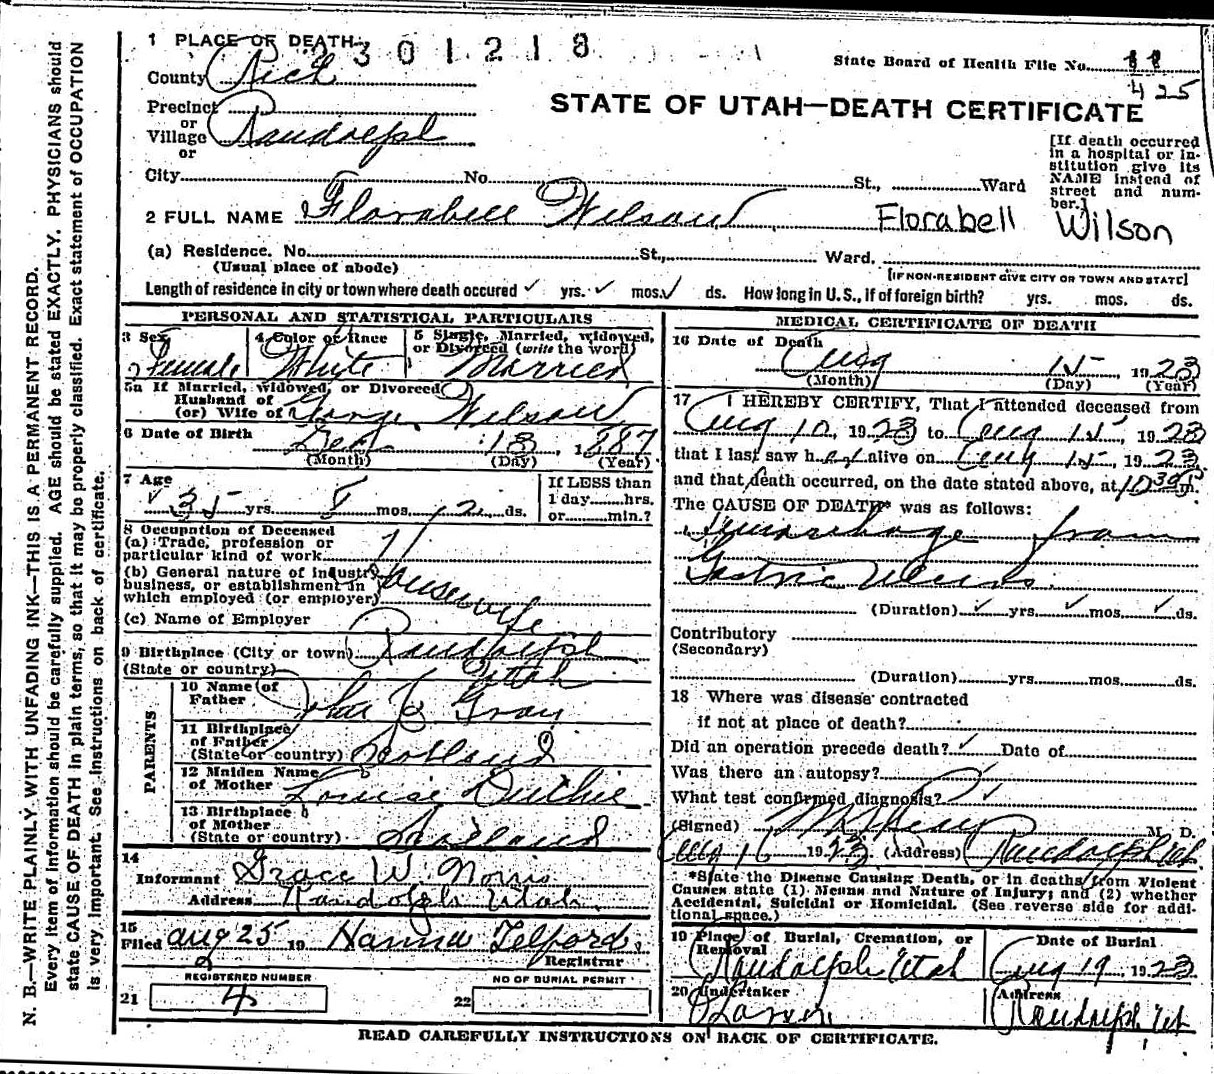 1 PLACE OF DEATH
301218
County Rich
State Board of Health File No. 11
425
Precinct
or
Village Randolph
or
STATE OF UTAH—DEATH CERTIFICATE
[If death occurred in a hospital or institution give its NAME instead of street and number.]
City No. St., Ward
2 FULL NAME Florabell Wilson Florabell Wilson
(a) Residence. No. St., Ward.
(Usual place of abode)
[IF NON-RESIDENT GIVE CITY OR TOWN AND STATE]
Length of residence in city or town where death occured ✓ yrs. ✓ mos. ✓ ds. How long in U. S., If of foreign birth? yrs. mos. ds.
PERSONAL AND STATISTICAL PARTICULARS
3 Sex Female
4 Color or Race White
5 Single, Married, widowed, or Divorced (write the word) Married
5a If Married, widowed, or Divorced
Husband of
(or) Wife of George Wilson
6 Date of Birth 13 1887
(Month) (Day) (Year)
7 Age
35 yrs. mos. 12 ds.
If LESS than
1 day hrs.
or min.?
8 Occupation of Deceased
(a) Trade, profession or
particular kind of work
(b) General nature of industry
business, or establishment in
which employed (or employer)
Housewife
(c) Name of Employer
9 Birthplace (City or town) Randolph
(State or country) Utah
PARENTS
10 Name of
Father Gray
11 Birthplace
of Father
(State or country) Scotland
12 Maiden Name
of Mother Louise Duthie
13 Birthplace
of Mother
(State or country) Scotland
14
Informant Grace W. Norris
Address Randolph Utah.
15
Filed Aug 25 19 Hanna Telford,
Registrar
REGISTERED NUMBER
21 4
NO OF BURIAL PERMIT
22
MEDICAL CERTIFICATE OF DEATH
16 Date of Death
Aug 15 1923
(Month) (Day) (Year)
17 I HEREBY CERTIFY, That I attended deceased from
Aug 10, 1923 to Aug 15, 1923
that I last saw her alive on Aug 15, 1923
and that death occurred, on the date stated above, at 10 30 P m.
The CAUSE OF DEATH* was as follows:
Hemorrhage from
Gastric Ulcers.
(Duration) ✓ yrs. ✓ mos. ✓ ds.
Contributory
(Secondary)
(Duration) yrs. mos. ds.
18 Where was disease contracted
if not at place of death?
Did an operation precede death? ✓ Date of
Was there an autopsy? ✓
What test confirmed diagnosis? ✓
(Signed) M. D.
Aug 16 1923 (Address) Randolph Ut
*State the Disease Causing Death, or in deaths from Violent
Causes state (1) Means and Nature of Injury; and (2) whether
Accidental, Suicidal or Homicidal. (See reverse side for addi-
tional space.)
19 Place of Burial, Cremation, or
Removal
Randolph Utah
Date of Burial
Aug 19, 1923
20 Undertaker
Address
Randolph, Ut
READ CAREFULLY INSTRUCTIONS ON BACK OF CERTIFICATE.
N. B.—WRITE PLAINLY WITH UNFADING INK—THIS IS A PERMANENT RECORD.
Every item of information should be carefully supplied. AGE should be stated EXACTLY. PHYSICIANS should
state CAUSE OF DEATH in plain terms, so that it may be properly classified. Exact statement of OCCUPATION
is very important. See Instructions on back of certificate.